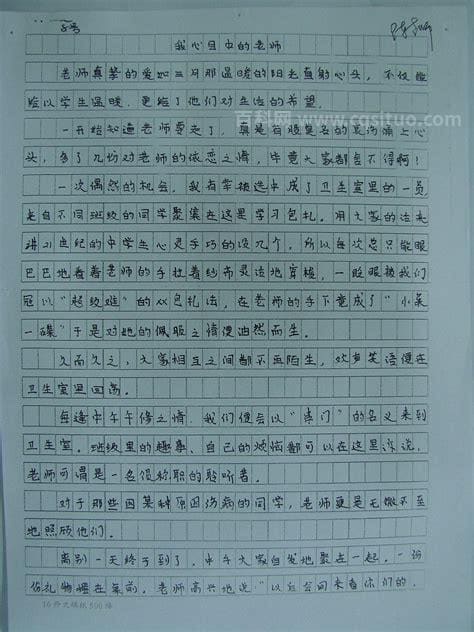 8号
我心目中的老师
老师真挚的爱如三月那温暖的阳光直射心头，不仅能
给以学生温暖，更给了他们对生活的希望。
百科网 www.cqsituo.com
一开始知道老师要走了，真是有股莫名的哀伤涌上心
头，多了几份对老师的依恋之情，毕竟大家都舍不得啊！
一次偶然的机会，我有幸被选中成了卫生室里的一员
来自不同班级的同学聚集在这里学习包扎。用大家的话来
讲21世纪的中学生心灵手巧的没几个，所以每次总只能眼
巴巴地看着老师的手拉着纱布灵活地穿梭，一眨眼被我们
冠以“超级难”的双包扎法，在老师的手下竟成了“小菜
一碟”于是对她的佩服之情便油然而生。
久而久之，大家相互之间都不再陌生，欢声笑语便在
卫生室里回荡。
每逢中午午休之情，我们便会以“串门”的名义来到
卫生室。班级里的趣事、自己的烦恼都可以在这里诉说，
老师可谓是一名很称职的聆听者。
对于那些因某种原因伤病的同学，老师更是无微不至
地照顾他们。
离别一天终于到了，中午大家自发地聚在一起，一份
份礼物摆在桌前，老师高兴地说“以后会回来看你们的，
16开文稿纸500格